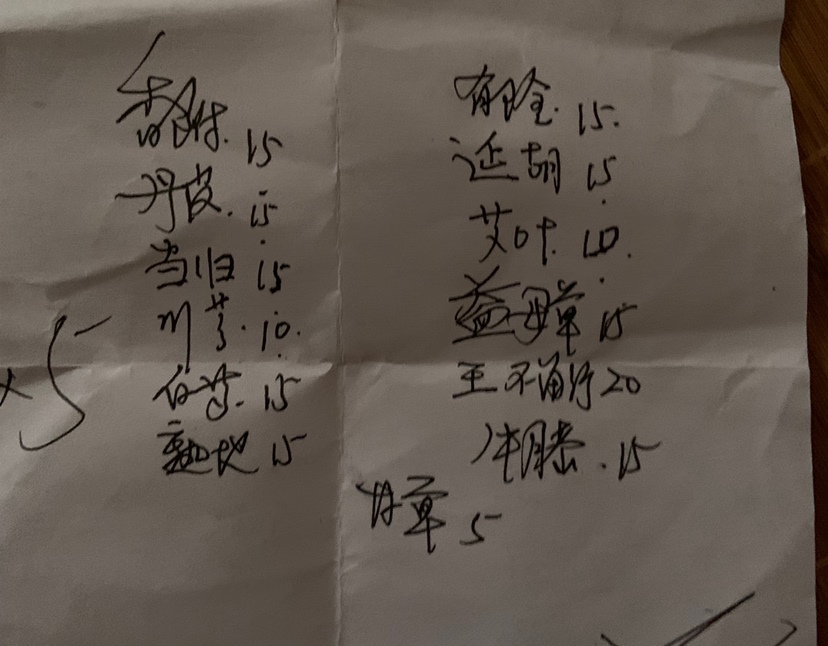 香附 15
丹皮 15
当归 15
川芎 10
白芍 15
熟地 15
×5
郁金 15
延胡 15
艾叶 10
益母草 15
王不留行 20
牛膝 15
甘草 5